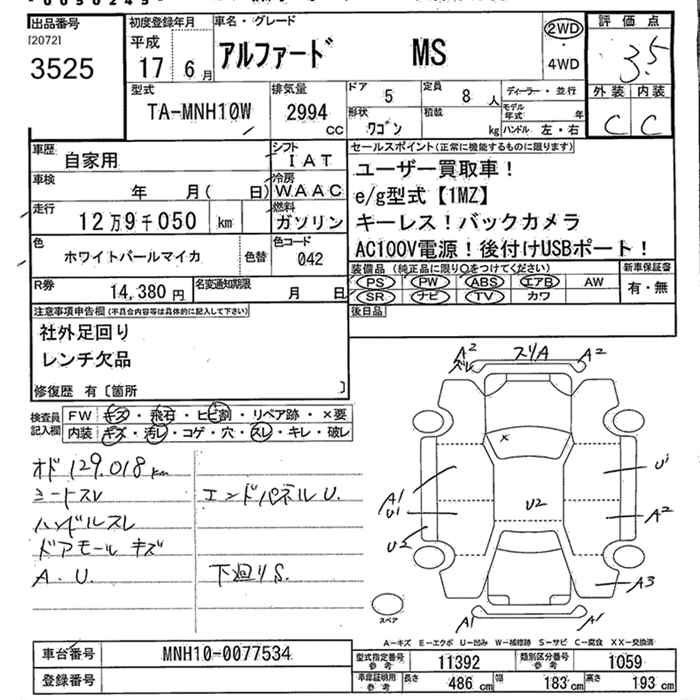 出品番号
[20721
3525
初度登録年月
平成
17 6月
車名・グレード
アルファード MS
2WD
・
4WD
評価点
3.5
外装 内装
C C
型式
TA-MNH10W
排気量
2994 CC
ドア 5
定員 8人
形状 ワゴン
積載 kg
ディーラー・並行
モデル年式 年
ハンドル 左・右
車歴 自家用
シフト IAT
車検 年 月( 日)
冷房 WAAC
走行 12万9千050 km
燃料 ガソリン
色 ホワイトパールマイカ
色替
色コード 042
R券 14,380円
名変通知期限 月 日
セールスポイント(正常に機能するものに限ります)
ユーザー買取車!
e/g型式【1MZ】
キーレス!バックカメラ
AC100V電源!後付けUSBポート!
装備品(純正品に限り○をつけてください)
PS PW ABS エアB AW
SR ナビ TV カワ
新車保証書
有・無
後日品
注意事項申告欄(不具合内容等は具体的に記入して下さい)
社外足回り
レンチ欠品
修復歴 有〔箇所 〕
検査員記入欄
FW キズ・飛石・ヒビ割・リペア跡・×要
内装 キズ・汚レ・コゲ・穴・スレ・キレ・破レ
オド129.018km
シートスレ
ハンドルスレ
ドアモール キズ
A.U.
エンドパネルU.
下廻りS.
A2 スリA A2
スレ
×
A1
U1
U2
U2
U1
A2
A3
A1 A1
スペア
A-キズ E-エクボ U-凹み W-補修跡 S-サビ C-腐食 XX-交換済
車台番号 MNH10-0077534
登録番号
型式指定番号 参考 11392
類別区分番号 参考 1059
車庫証明用 参考
長さ 486cm 幅 183cm 高さ 193cm